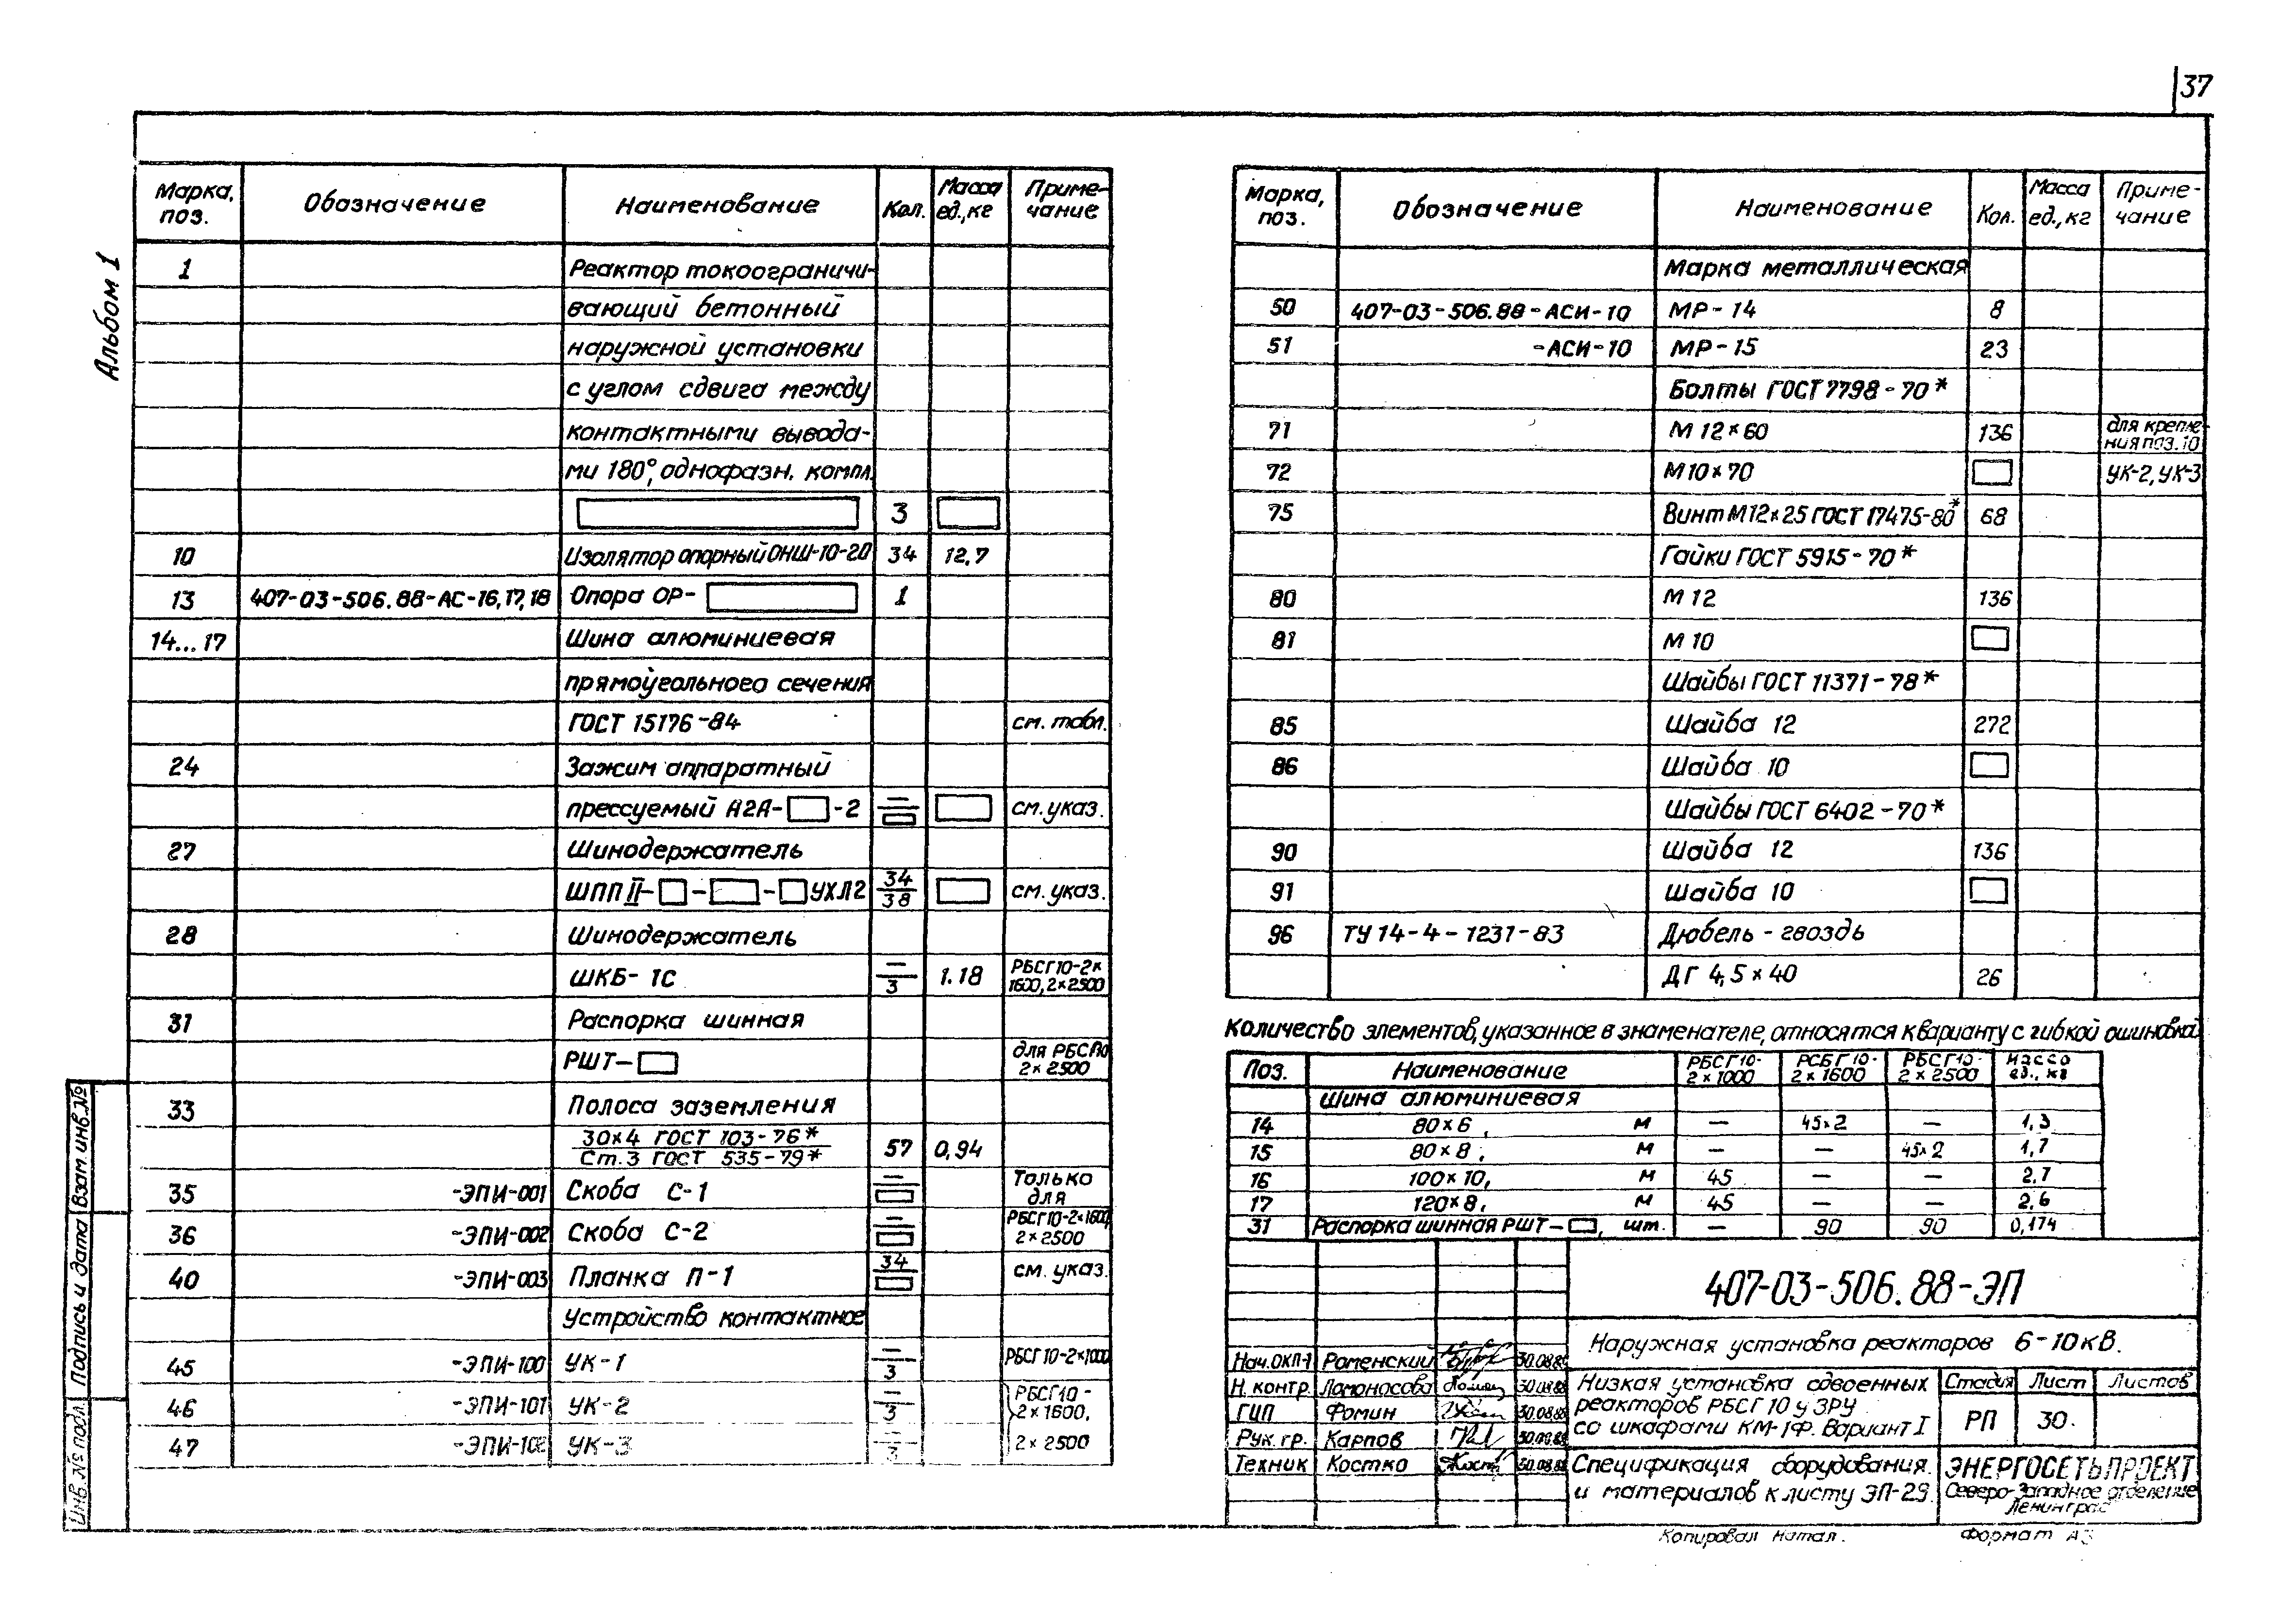 37
Альбом 1
Марка, поз. Обозначение Наименование Кол. Масса ед., кг Примечание
1 Реактор токоограничи-
вающий бетонный
наружной установки
с углом сдвига между
контактными вывода-
ми 180°, однофазн. компл.
3
10 Изолятор опорный ОНШ-10-20 34 12,7
13 407-03-506.88-АС-16,17,18 Опора ОР- 1
14...17 Шина алюминиевая
прямоугольного сечения
ГОСТ 15176-84 см. табл.
24 Зажим аппаратный
прессуемый А2А- -2 — см. указ.
27 Шинодержатель
ШПП II- - - УХЛ2 34/38 см. указ.
28 Шинодержатель
ШКБ-1С —/3 1.18 РБСГ10-2× 1600, 2×2500
31 Распорка шинная
РШТ- для РБСГ10 2×2500
33 Полоса заземления
30×4 ГОСТ 103-76*
Ст.3 ГОСТ 535-79* 57 0,94
35 -ЭПИ-001 Скоба С-1 — Только для
36 -ЭПИ-002 Скоба С-2 — РБСГ10-2×1600, 2×2500
40 -ЭПИ-003 Планка П-1 34 см. указ.
Устройство контактное
45 -ЭПИ-100 УК-1 —/3 РБСГ10-2×1000
46 -ЭПИ-101 УК-2 —/3 РБСГ10-2×1600,
47 -ЭПИ-102 УК-3 —/3 2×2500
Марка, поз. Обозначение Наименование Кол. Масса ед., кг Примечание
Марка металлическая
50 407-03-506.88-АСИ-10 МР-14 8
51 -АСИ-10 МР-15 23
Болты ГОСТ 7798-70*
71 М12×60 136 для крепления поз.10
72 М10×70 УК-2, УК-3
75 Винт М12×25 ГОСТ 17475-80* 68
Гайки ГОСТ 5915-70*
80 М12 136
81 М10
Шайбы ГОСТ 11371-78*
85 Шайба 12 272
86 Шайба 10
Шайбы ГОСТ 6402-70*
90 Шайба 12 136
91 Шайба 10
96 ТУ 14-4-1231-83 Дюбель-гвоздь
ДГ 4,5×40 26
Количество элементов, указанное в знаменателе, относятся к варианту с гибкой ошиновкой
Поз. Наименование РБСГ10-2×1000 РСБГ10-2×1600 РБСГ10-2×2500 Масса ед., кг
Шина алюминиевая
14 80×6, м — 45×2 — 1,3
15 80×8, м — — 45×2 1,7
16 100×10, м 45 — — 2,7
17 120×8, м 45 — — 2,6
31 Распорка шинная РШТ- , шт. — 90 90 0,174
407-03-506.88-ЭП
Наружная установка реакторов 6-10кВ.
Нач.ОКП-1 Роменский 30.08.88
Н. контр. Ломоносова 30.08.88
ГИП Фомин 30.08.88
Рук. гр. Карпов 30.08.88
Техник Костко 30.08.88
Низкая установка сдвоенных
реакторов РБСГ10 у ЗРУ
со шкафами КМ-1Ф. Вариант I
Стадия Лист Листов
РП 30.
Спецификация оборудования
и материалов к листу ЭП-29.
ЭНЕРГОСЕТЬПРОЕКТ
Северо-Западное отделение
Ленинград
Копировал Натал.
Формат А3
Взам. инв. №
Подпись и дата
Инв. № подл.